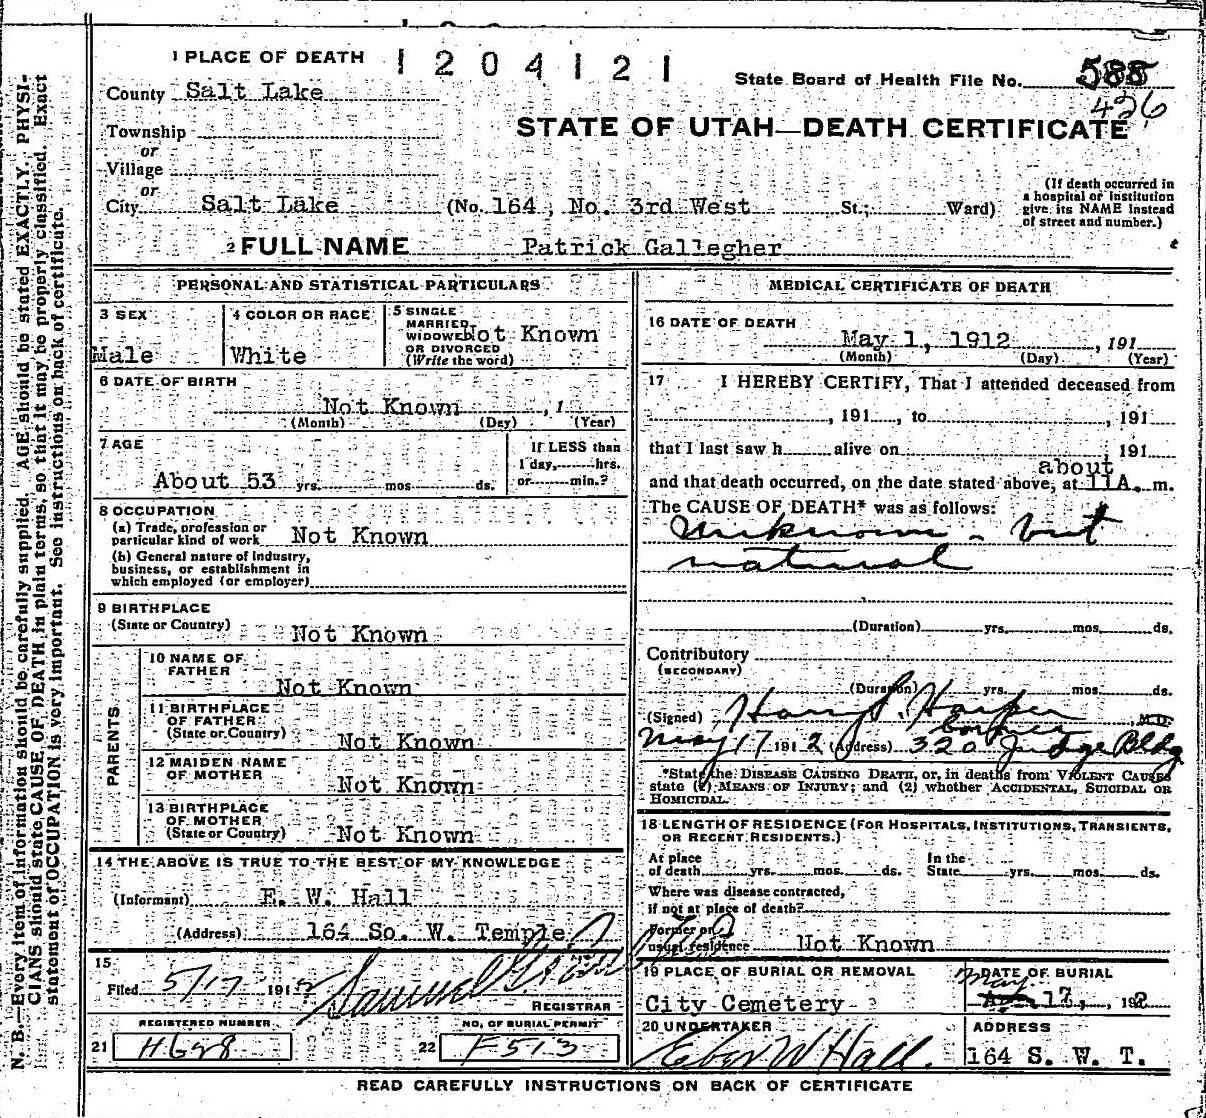 1 PLACE OF DEATH
1204121
State Board of Health File No. 585
426
County Salt Lake
STATE OF UTAH—DEATH CERTIFICATE
Township
or
Village
or
City Salt Lake (No. 164, No. 3rd West St.; Ward)
(If death occurred in a hospital or institution give its NAME instead of street and number.)
2 FULL NAME Patrick Gallegher
PERSONAL AND STATISTICAL PARTICULARS
3 SEX
Male
4 COLOR OR RACE
White
5 SINGLE
MARRIED
WIDOWED
OR DIVORCED
(Write the word)
Not Known
6 DATE OF BIRTH
Not Known , 1
(Month) (Day) (Year)
7 AGE
About 53 yrs. mos. ds.
If LESS than
1 day, hrs.
or min.?
8 OCCUPATION
(a) Trade, profession or
particular kind of work Not Known
(b) General nature of industry,
business, or establishment in
which employed (or employer)
9 BIRTHPLACE
(State or Country) Not Known
PARENTS
10 NAME OF
FATHER
Not Known
11 BIRTHPLACE
OF FATHER
(State or Country) Not Known
12 MAIDEN NAME
OF MOTHER Not Known
13 BIRTHPLACE
OF MOTHER
(State or Country) Not Known
14 THE ABOVE IS TRUE TO THE BEST OF MY KNOWLEDGE
(Informant) E. W. Hall
(Address) 164 So. W. Temple
15
Filed 5/17 1912
REGISTRAR
REGISTERED NUMBER
21 H628
NO. OF BURIAL PERMIT
22 F513
MEDICAL CERTIFICATE OF DEATH
16 DATE OF DEATH
May 1, 1912 , 191
(Month) (Day) (Year)
17 I HEREBY CERTIFY, That I attended deceased from
, 191 , to , 191
that I last saw h alive on , 191
about
and that death occurred, on the date stated above, at 11A. m.
The CAUSE OF DEATH* was as follows:
Unknown - but
natural
(Duration) yrs. mos. ds.
Contributory
(SECONDARY)
(Duration) yrs. mos. ds.
(Signed) Harry S. Harper M.D.
Coroner
May 17 1912 (Address) 320 Judge Bldg
*State the DISEASE CAUSING DEATH, or, in deaths from VIOLENT CAUSES
state (1) MEANS OF INJURY; and (2) whether ACCIDENTAL, SUICIDAL OR
HOMICIDAL.
18 LENGTH OF RESIDENCE (FOR HOSPITALS, INSTITUTIONS, TRANSIENTS,
OR RECENT RESIDENTS.)
At place
of death yrs. mos. ds.
In the
State yrs. mos. ds.
Where was disease contracted,
if not at place of death?
Former or
usual residence Not Known
19 PLACE OF BURIAL OR REMOVAL
City Cemetery
DATE OF BURIAL
May
17, , 1912
20 UNDERTAKER
Eber W Hall.
ADDRESS
164 S. W. T.
READ CAREFULLY INSTRUCTIONS ON BACK OF CERTIFICATE
N. B.—Every item of information should be carefully supplied. AGE should be stated EXACTLY. PHYSI-
CIANS should state CAUSE OF DEATH in plain terms, so that it may be properly classified. Exact
statement of OCCUPATION is very important. See instructions on back of certificate.